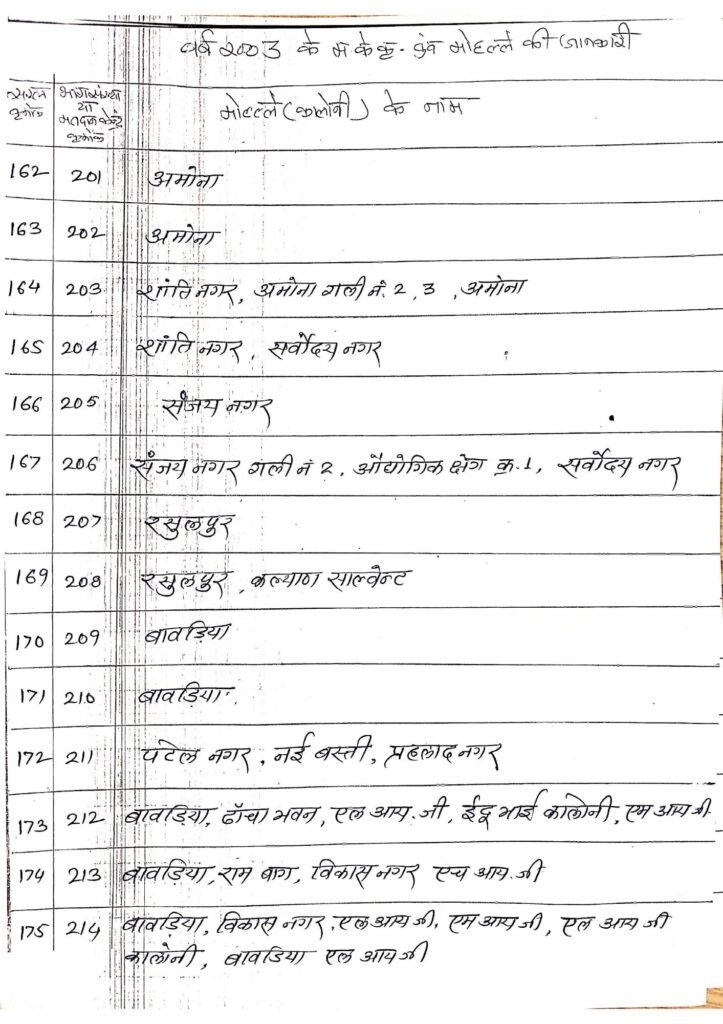 वर्ष 2003 के म के कृ. एंव मोहल्ले की जानकारी
सरल क्रमांक
भाग संख्या या मतदान केन्द्र क्रमांक
मोहल्ले (कालोनी) के नाम
162 201 अमोना
163 202 अमोना
164 203 शांति नगर, अमोना गली नं. 2, 3 , अमोना
165 204 शांति नगर, सर्वोदय नगर
166 205 संजय नगर
167 206 संजय नगर गली नं 2, औद्योगिक क्षेत्र क्र. 1, सर्वोदय नगर
168 207 रसुलपुर
169 208 रसुलपुर, कल्याण साल्वेन्ट
170 209 बावड़िया
171 210 बावड़िया
172 211 पटेल नगर, नई बस्ती, प्रहलाद नगर
173 212 बावड़िया, ढाँचा भवन, एल आय. जी, ईदू भाई कालोनी, एम आय जी
174 213 बावड़िया, राम बाग, विकास नगर एच आय. जी
175 214 बावड़िया, विकास नगर, एल आय जी, एम आय जी, एल आय जी
कालोनी, बावडिया एल आय जी